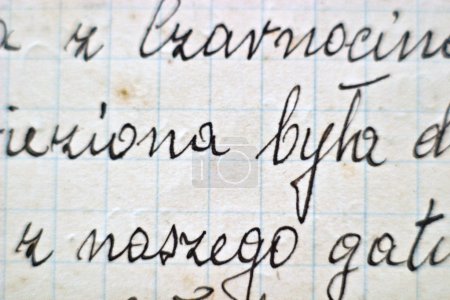 a z Czarnocina
ieziona była d
z naszego gatu